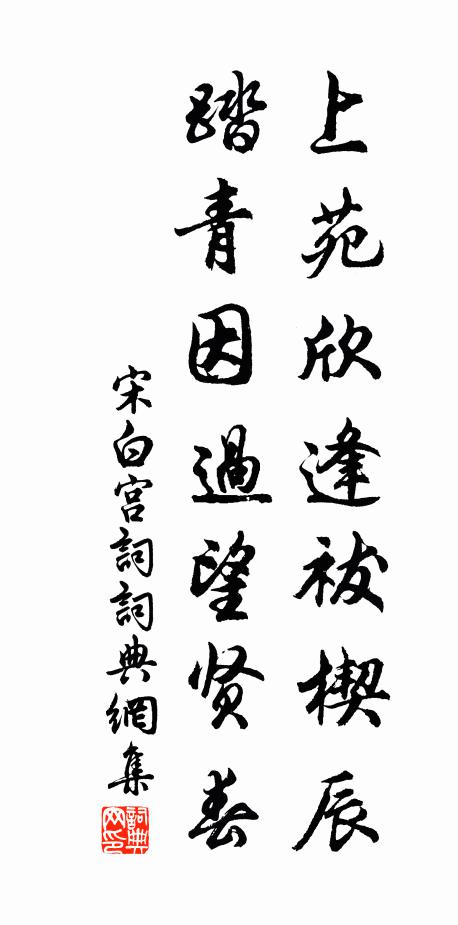 上苑欣逢祓楔辰
踏青因過望贤春
宋白宫詞詞典網集
詞典
网印